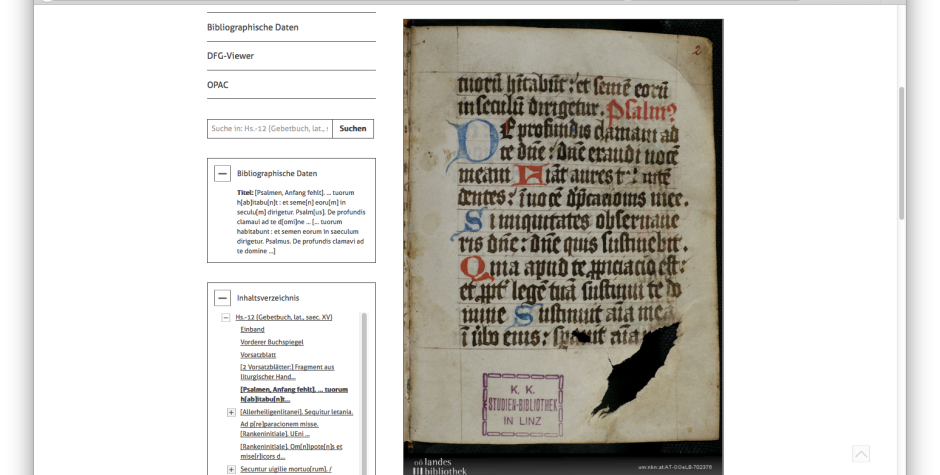 Bibliographische Daten
DFG-Viewer
OPAC
Suche in: Hs.-12 [Gebetbuch, lat., s
Suchen
Bibliographische Daten
Titel: [Psalmen, Anfang fehlt]. ... tuorum
h[ab]itabu[n]t : et seme[n] eoru[m] in
seculu[m] dirigetur. Psalm[us]. De profundis
clamaui ad te d[omi]ne ... [... tuorum
habitabunt : et semen eorum in saeculum
dirigetur. Psalmus. De profundis clamavi ad
te domine ...]
Inhaltsverzeichnis
Hs.-12 [Gebetbuch, lat., saec. XV]
Einband
Vorderer Buchspiegel
Vorsatzblatt
[2 Vorsatzblätter:] Fragment aus
liturgischer Hand...
[Psalmen, Anfang fehlt]. ... tuorum
h[ab]itabu[n]t...
[Allerheiligen[litanei]. Sequitur letania.
Ad p[re]paracionem misse.
[Rankeninitiale]. UEni ...
[Rankeninitiale]. Om[n]ipote[n]s et
mise[r]icors d...
Secuntur vigilie mortuo[rum]. /
2
tuorū hītabūt : et semē eorū
in seculū dirigetur. Psalm⁹
De profundis clamaui ad
te dn̄e : dn̄e exaudi uocē
meam Fiāt aures
Si iniquitates obseruaue
ris dn̄e : dn̄e quis sustinebit.
Quia apud te
et legē tuā sustinui te do
mine Sustinuit aīa mea
ī ūbo eius : aīa
K. K.
STUDIEN-BIBLIOTHEK
IN LINZ
oö landes
bibliothek
urn:nbn:at:AT-OOeLB-702376